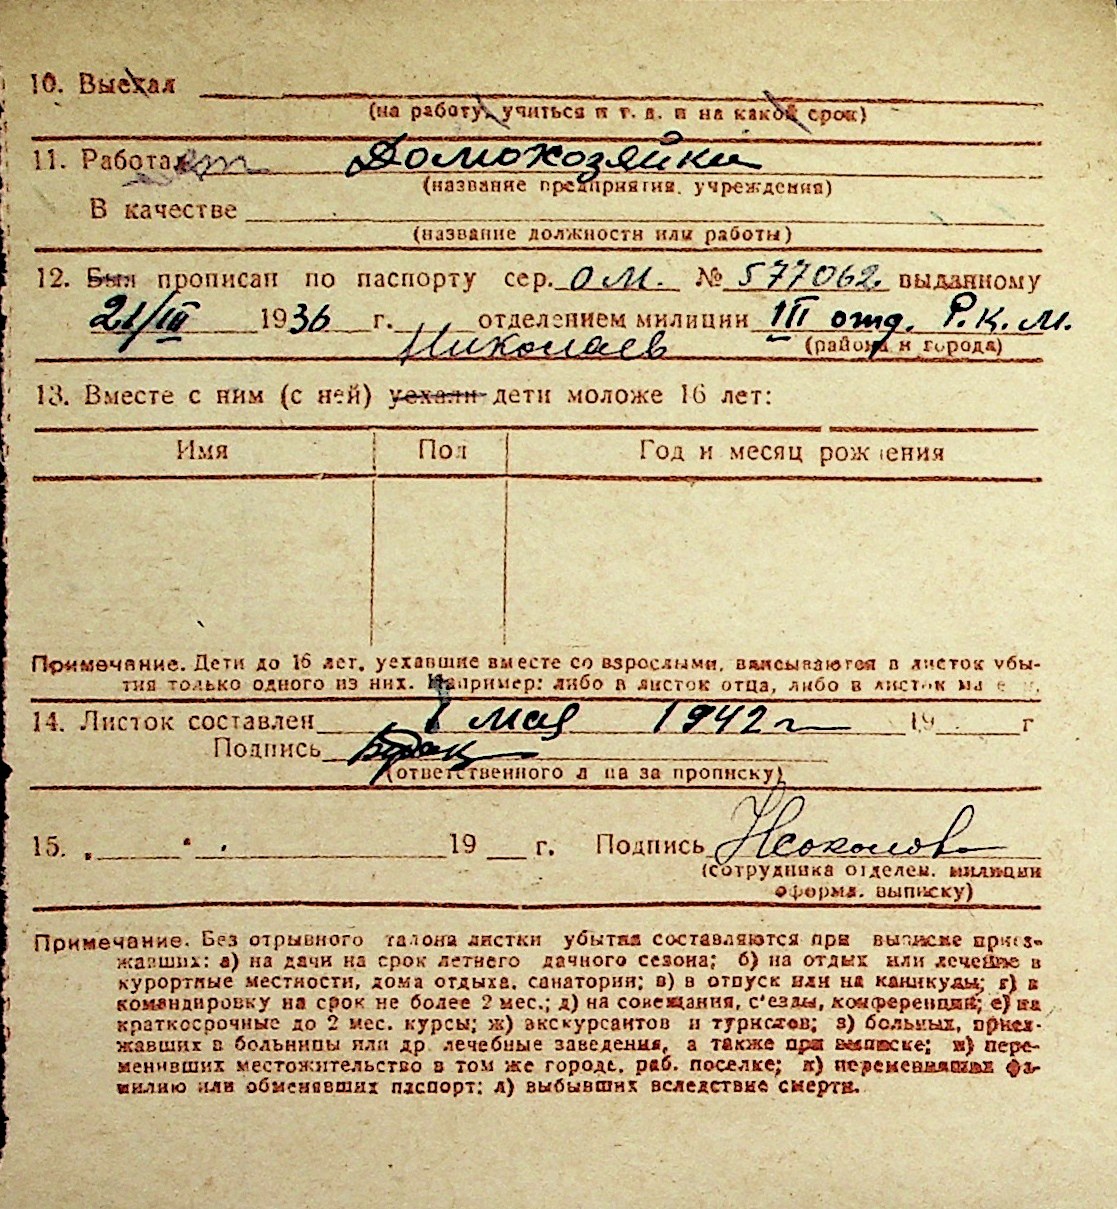 10. Выехал
(на работу, учиться и т. д. и на какой срок)
11. Работает Домохозяйки
(название предприятия, учреждения)
В качестве
(название должности или работы)
12. Был прописан по паспорту сер. ОМ. № 577062. выданному
21/III 1936 г. отделением милиции III отд. Р.К.М.
Николаев (района и города)
13. Вместе с ним (с ней) уехали дети моложе 16 лет:
Имя Пол Год и месяц рождения
Примечание. Дети до 16 лет, уехавшие вместе со взрослыми, вписываются в листок убы-
тия только одного из них. Например: либо в листок отца, либо в листок
14. Листок составлен 1 мая 1942 г 19 г
Подпись
(ответственного лица за прописку)
15. " " 19 г. Подпись
(сотрудника отделен. милиции
оформл. выписку)
Примечание. Без отрывного талона листки убытия составляются при выписке приез-
жавших: а) на дачи на срок летнего дачного сезона; б) на отдых или лечение в
курортные местности, дома отдыха, санатории; в) в отпуск или на каникулы; г) в
командировку на срок не более 2 мес.; д) на совещания, с'езды, конференции; е) на
краткосрочные до 2 мес. курсы; ж) экскурсантов и туристов; з) больных, приез-
жавших в больницы или др. лечебные заведения, а также при выписке; и) пере-
менивших местожительство в том же городе, раб. поселке; к) переменивших фа-
милию или обменявших паспорт; л) выбывших вследствие смерти.